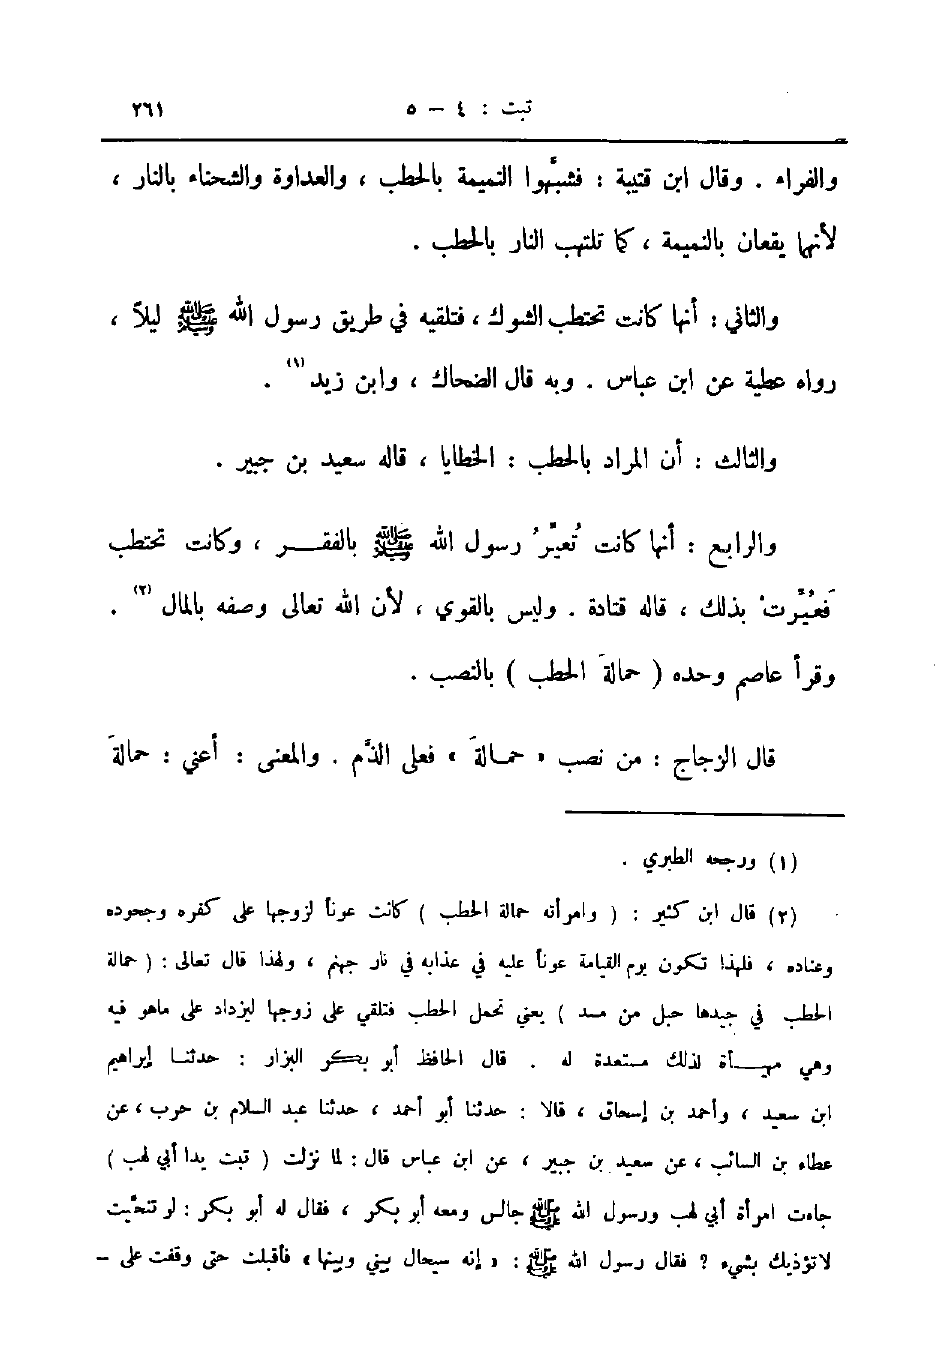 تبت : ٤ – ٥ ٢٦١
والفراء . وقال ابن قتيبة : فشبَّهوا النميمة بالحطب ، والعداوة والشحناء بالنار ،
لأنها يقعان بالنميمة ، كما تلتهب النار بالحطب .
والثاني : أنها كانت تحتطب الشوك ، فتلقيه في طريق رسول الله ﷺ ليلاً ،
رواه عطية عن ابن عباس . وبه قال الضحاك ، وابن زيد (١) .
والثالث : أن المراد بالحطب : الخطايا ، قاله سعيد بن جبير .
والرابع : أنها كانت تُعيِّرُ رسول الله ﷺ بالفقـــر ، وكانت تحتطب
فَعُيِّرتْ بذلك ، قاله قتادة . وليس بالقوي ، لأن الله تعالى وصفه بالمال (٢) .
وقرأ عاصم وحده ( حمالةَ الحطب ) بالنصب .
قال الزجاج : من نصب « حمـالةَ » فعلى الذَّم . والمعنى : أعني : حمالةَ
(١) ورجحه الطبري .
(٢) قال ابن كثير : ( وامرأته حمالة الحطب ) كانت عوناً لزوجها على كفره وجحوده
وعناده ، فلهذا تكون يوم القيامة عوناً عليه في عذابه في نار جهنم ، ولهذا قال تعالى : ( حمالة
الحطب في جيدها حبل من مسد ) يعني تحمل الحطب فتلقي على زوجها ليزداد على ماهو فيه
وهي مهيـــأة لذلك مستعدة له . قال الحافظ أبو بكر البزار : حدثنـا إبراهيم
ابن سعيد ، وأحمد بن إسحاق ، قالا : حدثنا أبو أحمد ، حدثنا عبد السلام بن حرب ، عن
عطاء بن السائب ، عن سعيد بن جبير ، عن ابن عباس قال : لما نزلت ( تبت يدا أبي لهب )
جاءت امرأة أبي لهب ورسول الله ﷺ جالس ومعه أبو بكر ، فقال له أبو بكر : لو تنحَّيت
لاتؤذيك بشيء ؟ فقال رسول الله ﷺ : « إنه سيحال بيني وبينها » فأقبلت حتى وقفت على –